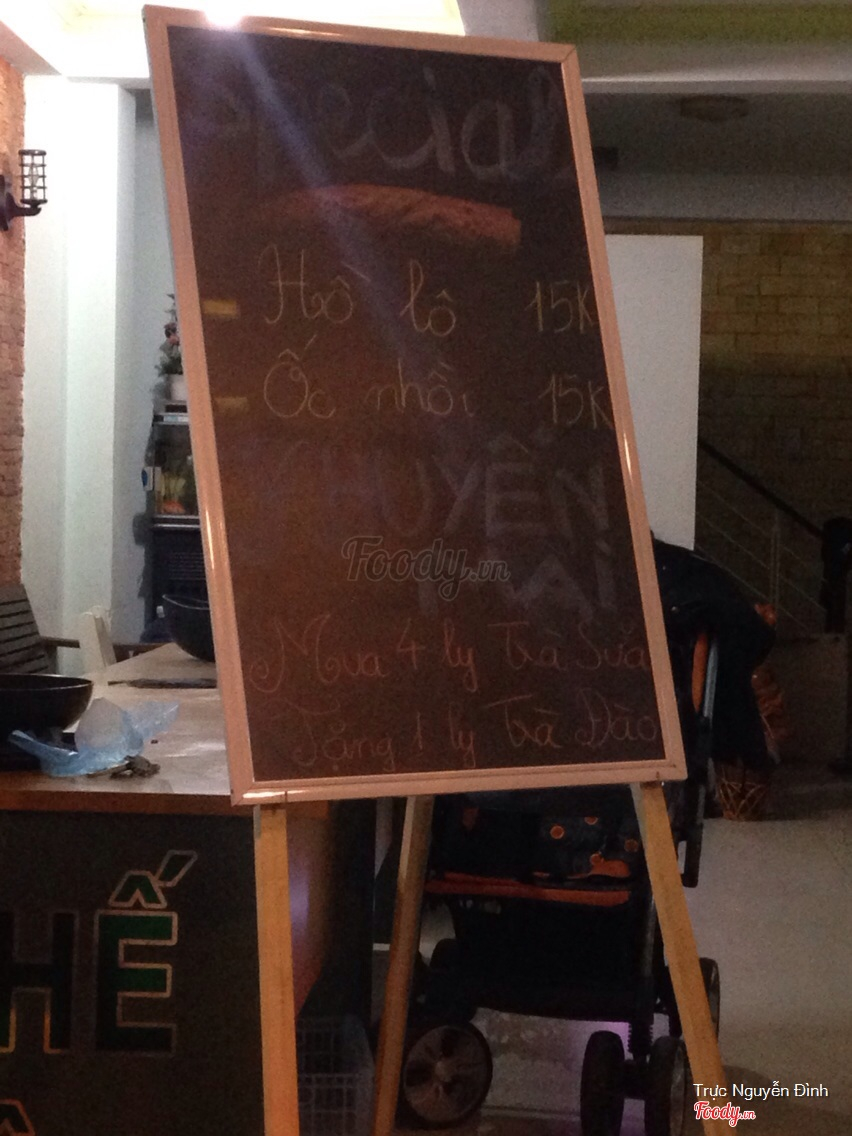 Special
- Hồ lô 15K
- Ốc nhồi 15K
KHUYẾN
MẠI
Foody.vn
Mua 4 ly Trà Sữa
Tặng 1 ly Trà Đào
HẾ
Trực Nguyễn Đình
Foody.vn